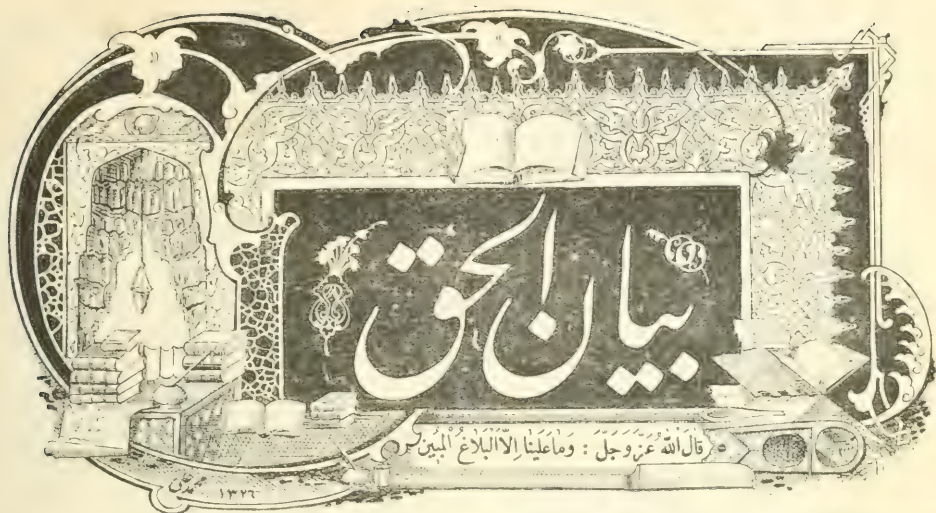 بيان الحق
قال الله عز وجل : وَمَا عَلَيْنَا اِلَّا الْبَلَاغُ الْمُبِينُ
محمد علی
١٣٢٦